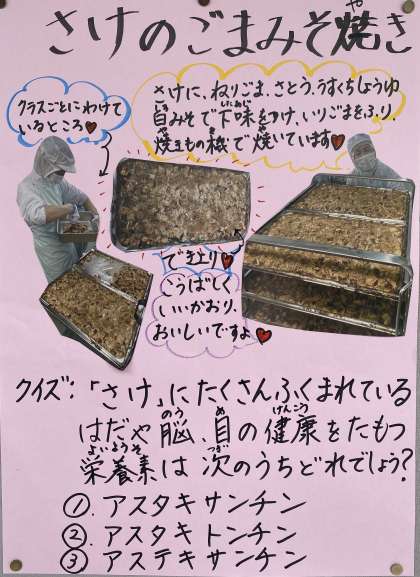 さけのごまみそ焼き
クラスごとにわけて
いるところ♥
さけに、ねりごま、さとう、うすくちしょうゆ
白みそで下味をつけ、いりごまをふり、
焼きもの機で焼いています♥
でき上り♥
こうばしく
いいかおり、
おいしいですよ♥
クイズ：「さけ」にたくさんふくまれている
はだや脳、目の健康をたもつ
栄養素は次のうちどれでしょう？
①．アスタキサンチン
②．アスタキトンチン
③．アステキサンチン